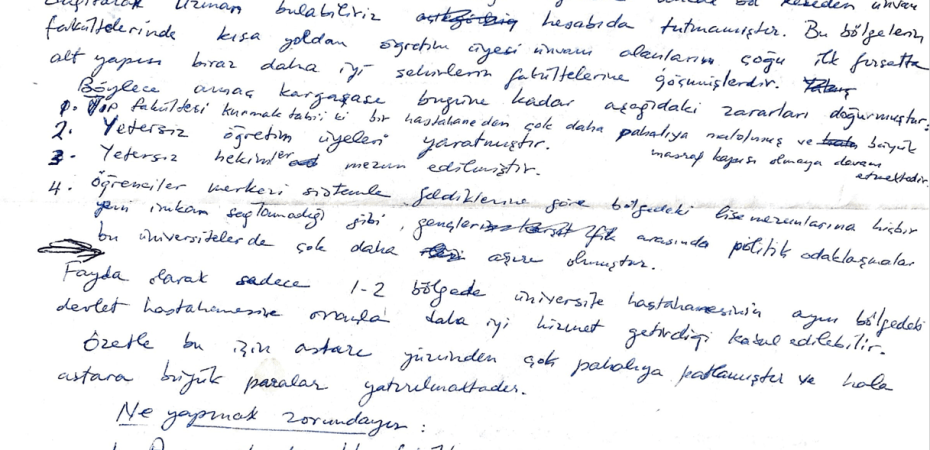 Uzman bulabiliriz hesabıda tutmamıştır. Bu bölgelerin
fakültelerinde kısa yoldan öğretim üyesi ünvanı alanların çoğu ilk fırsatta
alt yapısı biraz daha iyi şehirlerin fakültelerine göçmüşlerdir.
Böylece amaç kargaşası bugüne kadar aşağıdaki zararları doğurmuştur:
1. Tıp fakültesi kurmak tabii ki bir hastahaneden çok daha pahalıya malolmuş ve büyük
masraf kapısı olmaya devam
etmektedir.
2. Yetersiz öğretim üyeleri yaratmıştır.
3. Yetersiz hekimler mezun edilmiştir.
4. Öğrenciler merkezi sistemle geldiklerine göre bölgedeki lise mezunlarına hiçbir
yeni imkan sağlamadığı gibi, gençler arasında politik odaklaşmalar
bu üniversitelerde çok daha aşırı olmuştur.
Fayda olarak sadece 1-2 bölgede üniversite hastahanesinin aynı bölgedeki
devlet hastahanesine oranla daha iyi hizmet getirdiği kabul edilebilir.
Özetle bu işin astarı yüzünden çok pahalıya patlamıştır ve hala
astara büyük paralar yatırılmaktadır.
Ne yapmak zorundayız: